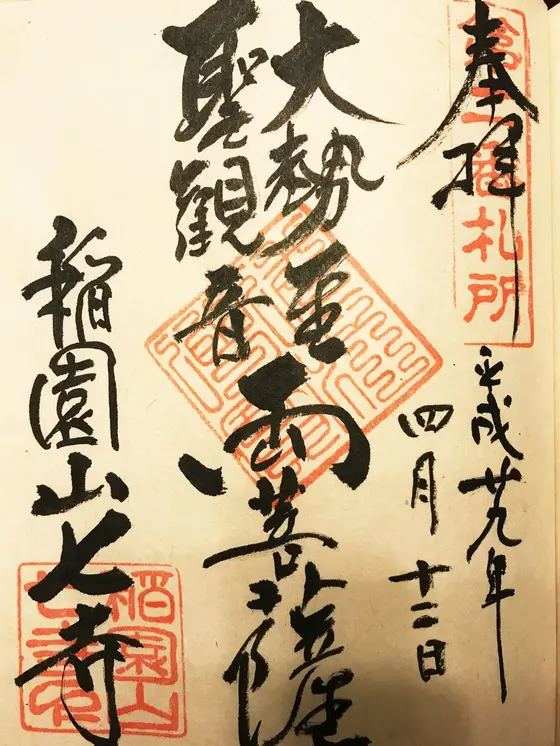 奉拝
札所
平成廿九年
四月十二日
大勢至
聖観音
両菩薩
稲園山七寺
稲園山